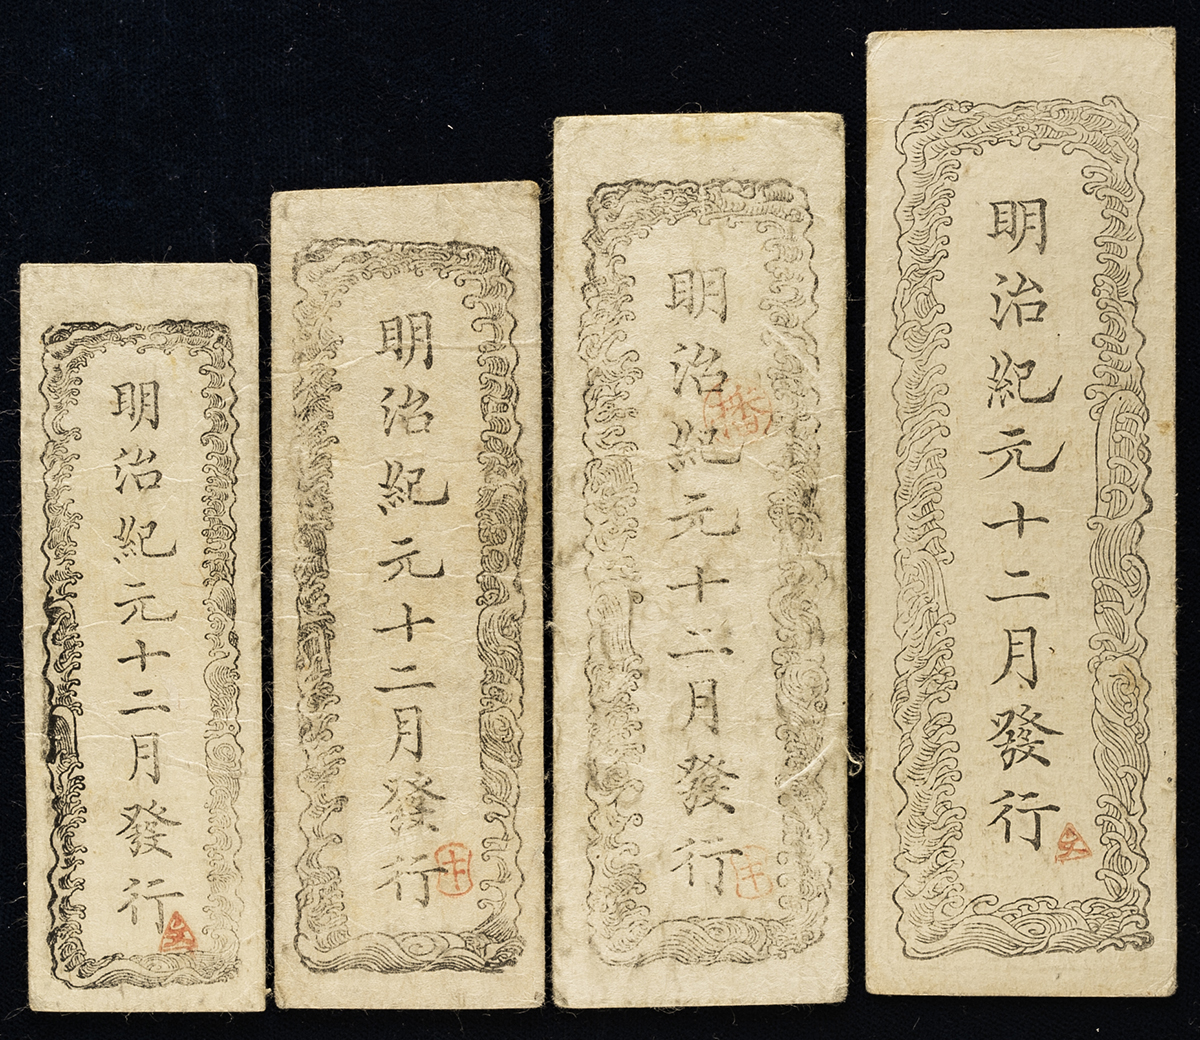 明治紀元十二月發行
明治紀元十二月發行
明治紀元十二月發行
播
明治紀元十二月發行